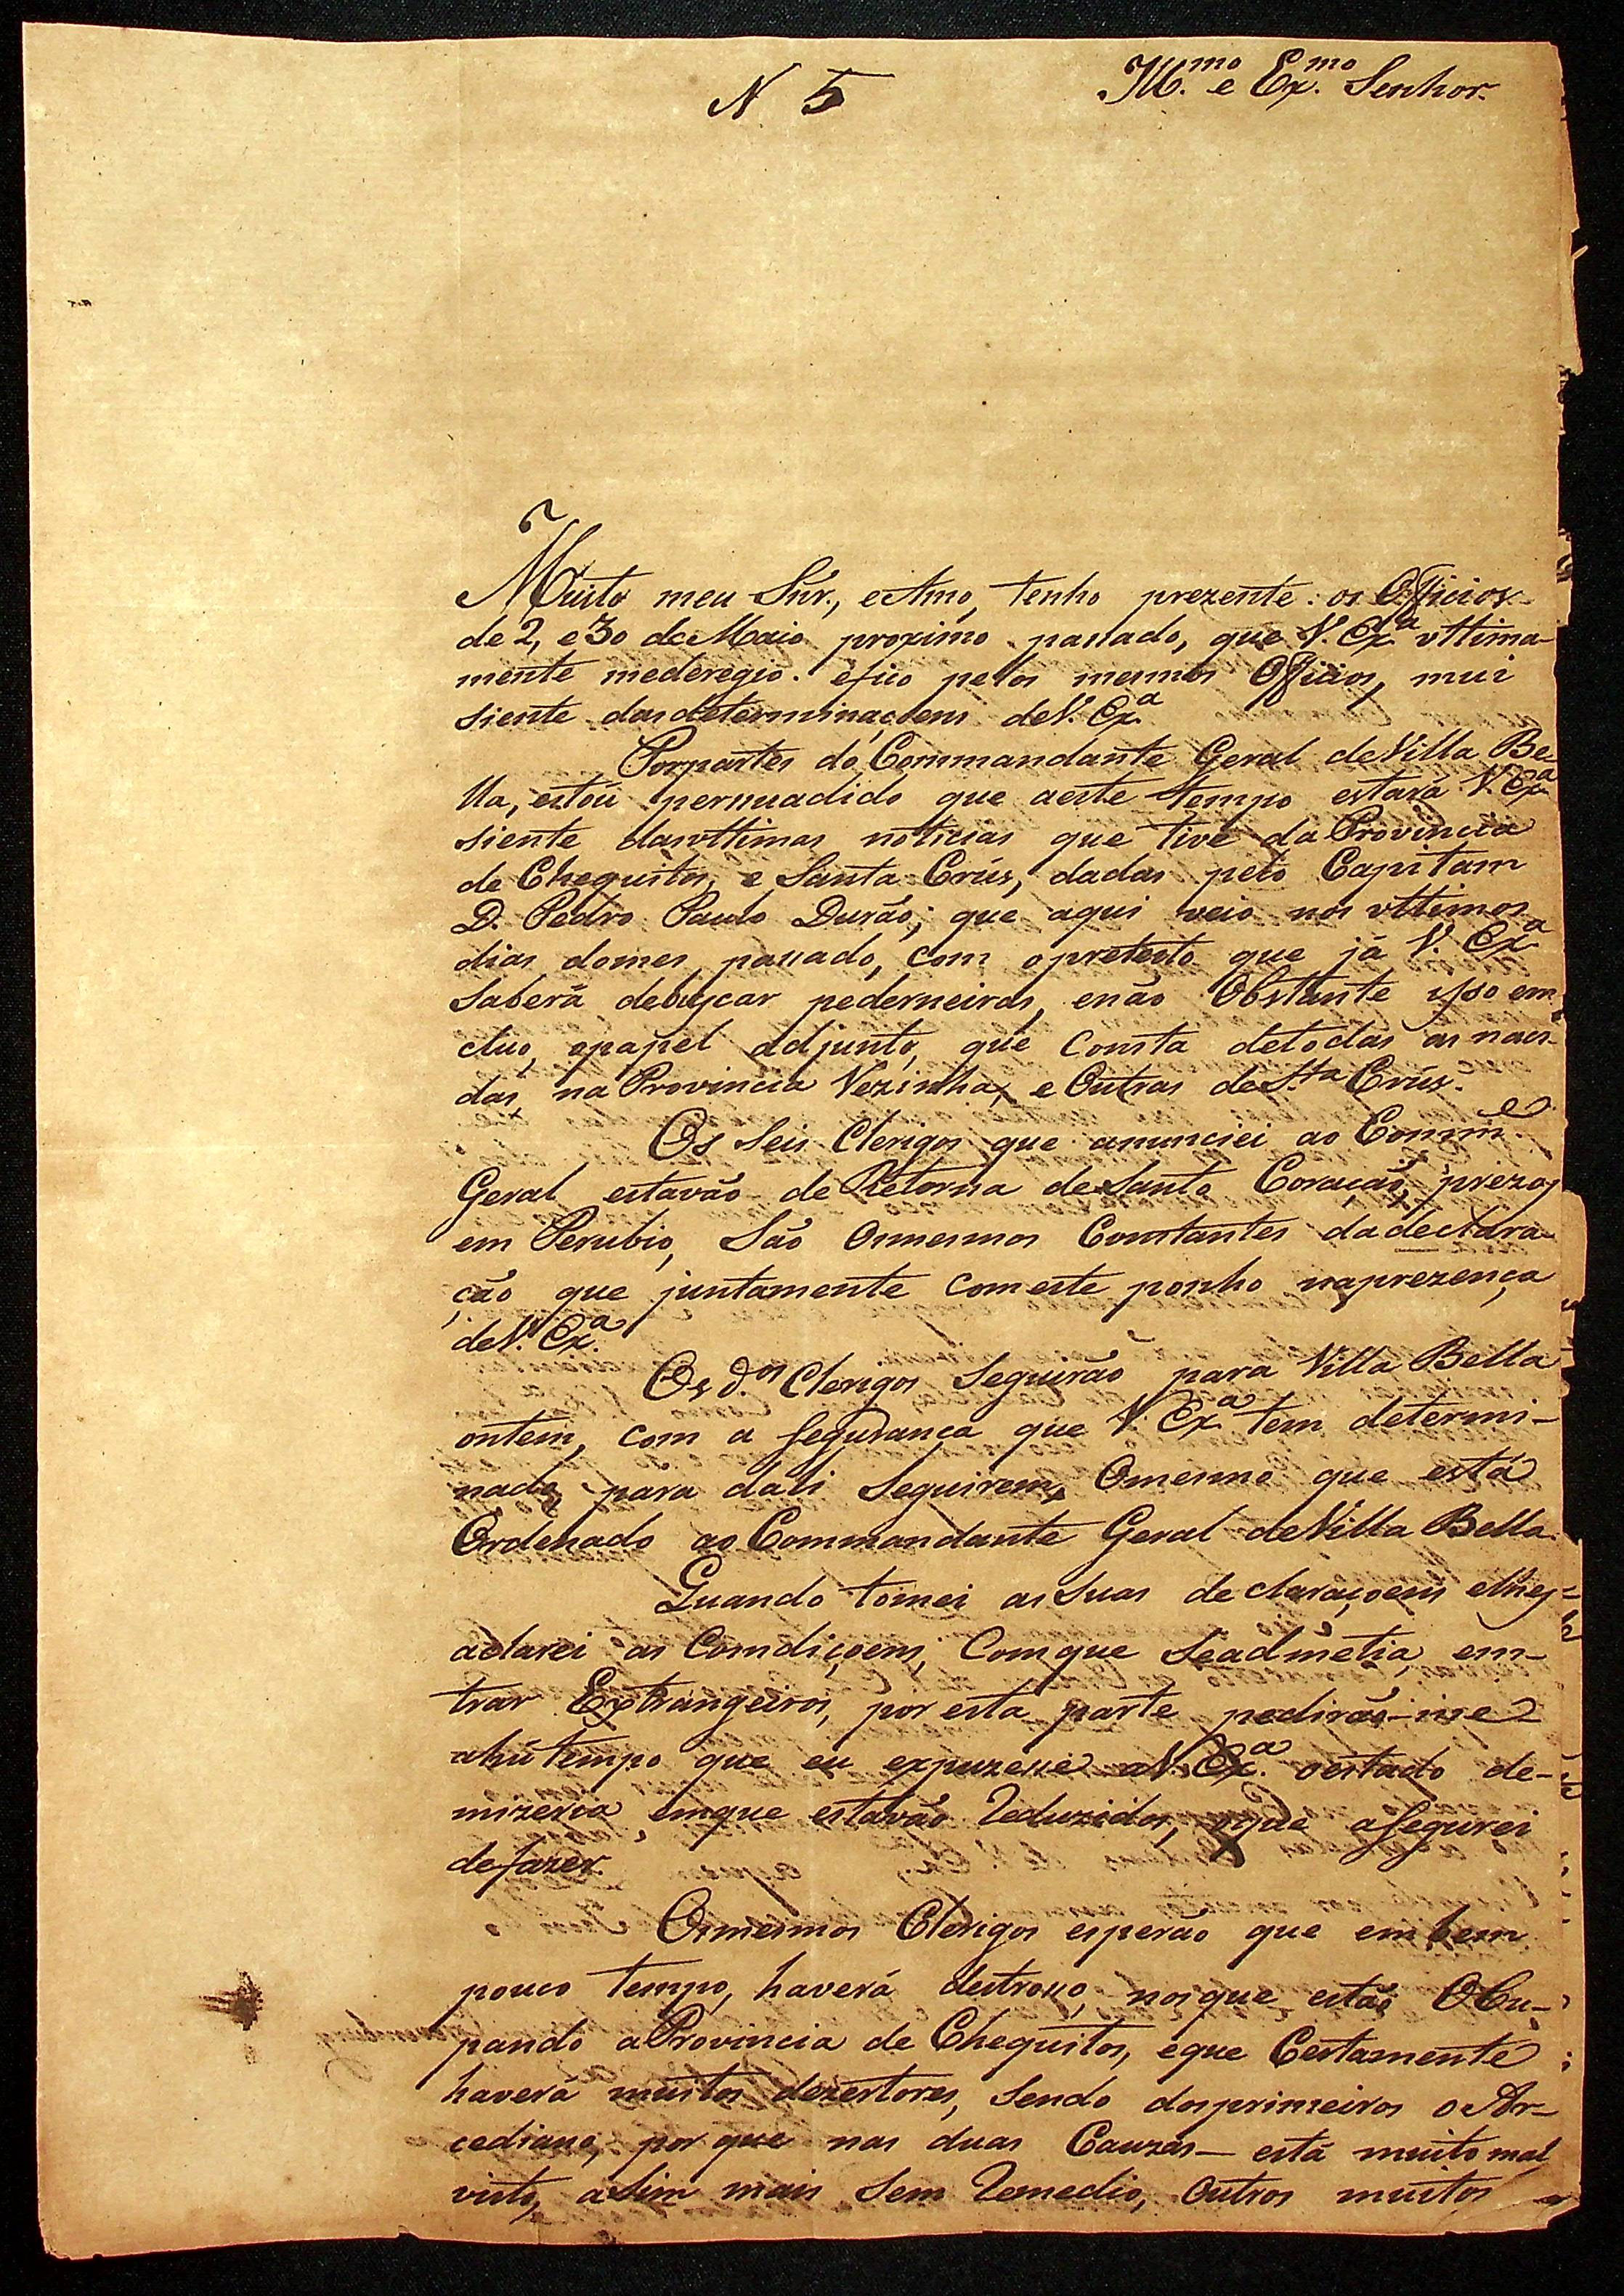 N 5
Ill.mo e Ex.mo Senhor.
Muito meu Snr., e Amo, tenho prezente os Officios
de 2, e 30 de Maio proximo passado, que V. Ex.a ultima-
mente mederegio. éfico pelos mesmos Officios, mui
siente das determinaçoens deV. Ex.a
Porpartes do Commandante Geral deVilla Be-
lla, estou persuadido que aeste tempo estará V. Ex.a
siente dasultimas noticias que tive da Provincia
de Chequitos, e Santa Crús, dadas pelo Capitam
D. Pedro Paulo Durão; que aqui veio nos ultimos
dias domes passado, com opretesto que já V. Ex.a
Saberá debuscar pederneiras, enão Obstante isso em
cluo, opapel adjunto, que Consta detodas as
das na Provincia Vezinha, e Outras deS.ta Crús.
Os Seis Clerigos que anunciei ao Comm.e
Geral estavão de Retorna deSanto Coração, prezos
em Perubio, São Osmesmos Constantes dadeclara-
ção que juntamente comeste ponho naprezença
deV. Ex.a
Os d.os Clerigos Seguirão para Villa Bella
ontem, com a Segurança que V. Ex.a tem determi-
nado, para dali Seguirem, Omesmo que está
Ordenado ao Commandante Geral deVilla Bella.
Quando tomei asSuas declaraçoens elhes
aclarei as Comdiçoens, Comque Seadmetia, em-
trar Extrangeiros, por esta parte pedirão-me
ahũ tempo que eu expuzesse aV. Ex.a oestado de-
mizeria, emque estavão Reduzidos, oque aSegurei
defazer.
Osmesmos Clerigos esperão que em bem
pouco tempo, haverá destroso, nosque estão OCu-
pando aProvincia de Chequitos, eque Certamente
haverá muitos dezertores, Sendo dosprimeiros o Ar-
cediano, por que nas duas Cauzas- está muito mal
visto, aSim mais Sem Remedio, Outros muitos